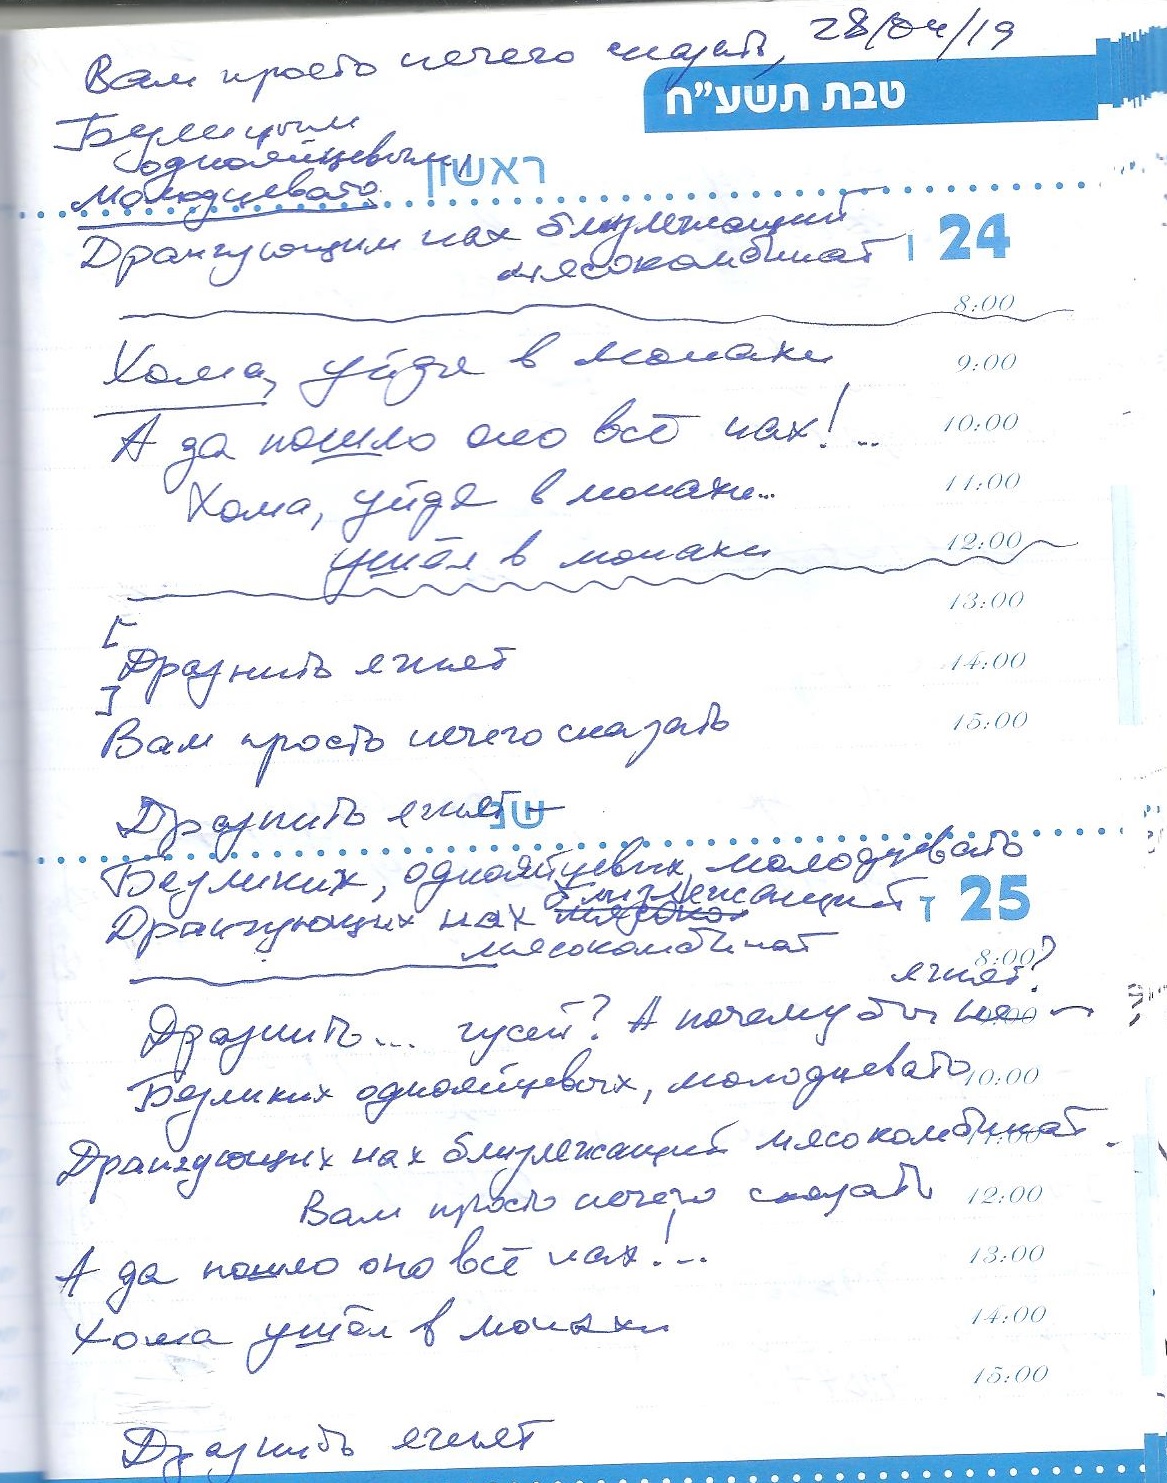 Вам просто нечего сказать, 28/04/19
טבת תשע״ח
Безликим
однояйцевым,
ראשון
молодцевато
Дрангующим нах близлежащий
мясокомбинат
א 24
8:00
Хома, уйдя в монахи
9:00
А да пошло оно всё нах!..
10:00
Хома, уйдя в монахи...
11:00
ушёл в монахи
12:00
13:00
[
Дразнить ягнят
14:00
]
Вам просто нечего сказать
15:00
Дразнить ягнят –
שני
Безликих, однояйцевых, молодцевато
Дрангующих нах близлежащий
ב 25
мясокомбинат
8:00
ягнят?
Дразнить... гусей? А почему бы не
9:00
Безликих однояйцевых, молодцевато
10:00
Дрангующих нах близлежащий мясокомбинат.
11:00
Вам просто нечего сказать
12:00
А да пошло оно всё нах!...
13:00
Хома ушёл в монахи
14:00
15:00
Дразнить ягнят